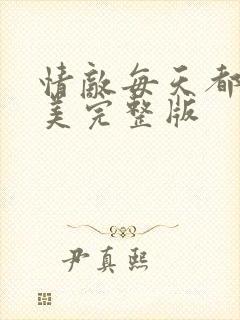 情敌每天都
美完整版
尹真熙